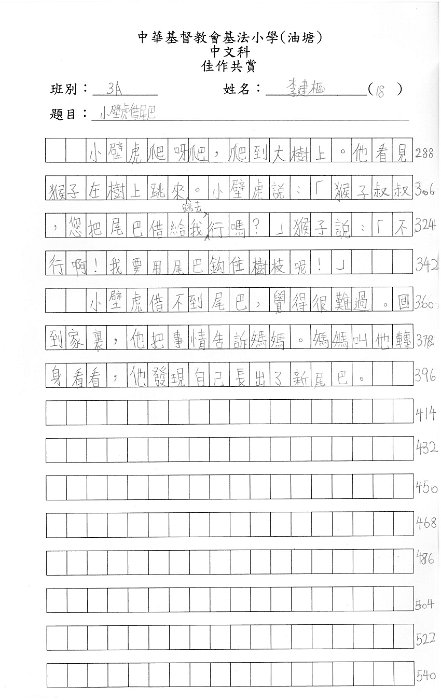 中華基督教會基法小學(油塘)
中文科
佳作共賞
班別：3A 姓名：李建樞(18)
題目：小壁虎借尾巴
小壁虎爬呀爬，爬到大樹上。他看見 288
猴子在樹上跳來跳去。小壁虎說：「猴子叔叔 306
，您把尾巴借給我行嗎？」猴子說：「不 324
行啊！我要用尾巴鈎住樹枝呢！」 342
小壁虎借不到尾巴，覺得很難過。回 360
到家裏，他把事情告訴媽媽。媽媽叫他轉 378
身看看，他發現自己長出了新尾巴。 396
414
432
450
468
486
504
522
540